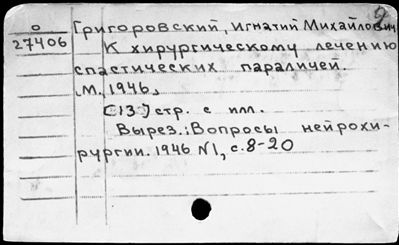 2
О
27406
Григоровский, Игнатий Михайлович
К хирургическому лечению
спастических параличей.
М., 1946,
[13] стр. с илл.
Вырез.: Вопросы нейрохи-
рургии. 1946 N1, с. 8-20